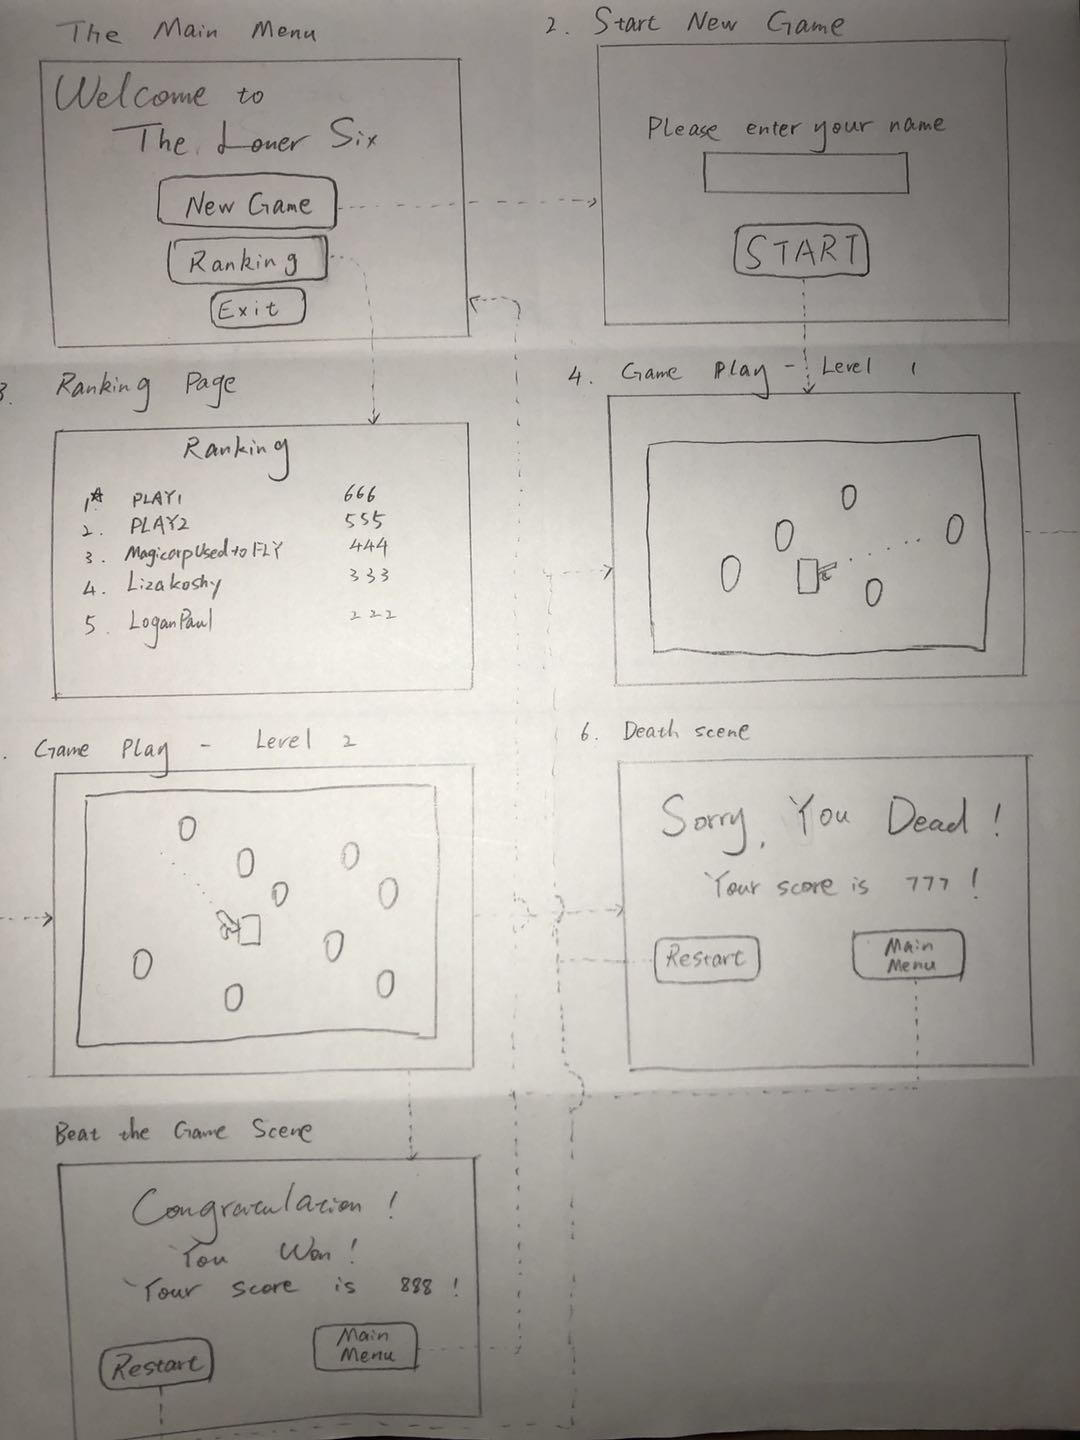 The Main Menu
Welcome to
The Loner Six
New Game
Ranking
Exit
2. Start New Game
Please enter your name
START
3. Ranking Page
Ranking
1 PLAY1 666
2. PLAY2 555
3. MagicarpUsedtoFLY 444
4. Lizakoshy 333
5. LoganPaul 222
4. Game Play - Level 1
. Game Play - Level 2
6. Death scene
Sorry, You Dead!
Your score is 777!
Restart
Main
Menu
Beat the Game Scene
Congratulation!
You Won!
Your score is 888!
Restart
Main
Menu